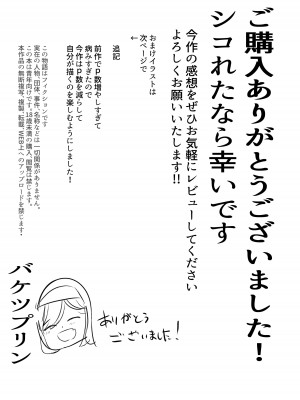 ご購入ありがとうございました！
シコれたなら幸いです
今作の感想をぜひお気軽にレビューしてください
よろしくお願いいたします!!
おまけイラストは
次ページで
←
追記
前作でP数増やしすぎて
病みすぎたので
今作はP数を減らして
自分が描くのを楽しむようにしました！
この物語はフィクションです
実在の人物、団体、事件、名称などとは一切関係がありません。
この本は青年向けです。18歳未満の購入、閲覧は禁じます。
本作品の無断複写、複製、転載、WEB上へのアップロードを禁じます。
ありがとう
ございました！
バケツプリン